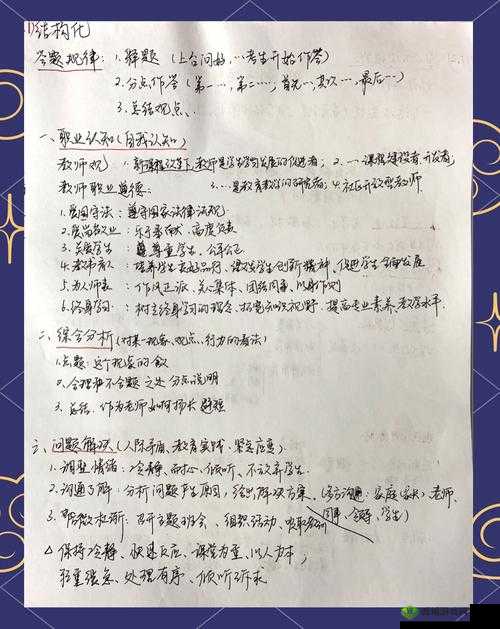 结构化
答题规律：1.释题（上台问好，…考生开始作答）
2.分点作答（第一…，第二…；首先…其次…，最后…）
3.总结观点、
一、职业认知（自我认知）
教师观：1.新课程改革下，教师是学生学习发展的促进者；2.…课程建设者、开发者；
教师职业道德： 3.…是教育教学的研究者；4.社区开放型教师．
1.爱国守法：遵守国家法律法规
2.爱岗敬业：乐于奉献，高度负责
3.关爱学生：尊重学生，公平公正
4.教书育人：培养学生良好品行，激发学生创新精神、促进学生全面发展
5.为人师表：作风正派、关心集体、团结同事，以身作则
6.终身学习：树立终身学习的理念、拓宽知识视野．提高专业素养、教学水平．
二、综合分析（对某一现象、观点、行为的看法）
1.点题：这个现象的
2.合理和不合理之处 分点说明
3.总结．作为老师如何扬长避短
六、问题解决（人际矛盾、教育实践、紧急应急）
1.调整情绪：冷静、耐心、倾听、不放弃学生．
2.沟通了解：分析问题产生原因，给出解决方案．（多方沟通：家庭（家长）、老师、
3. 召开主题班会、组织活动、 同事、领导、学生）
△保持冷静、快速反应、课堂为重，以人为本；
轻重缓急、处理有序、倾听诉求